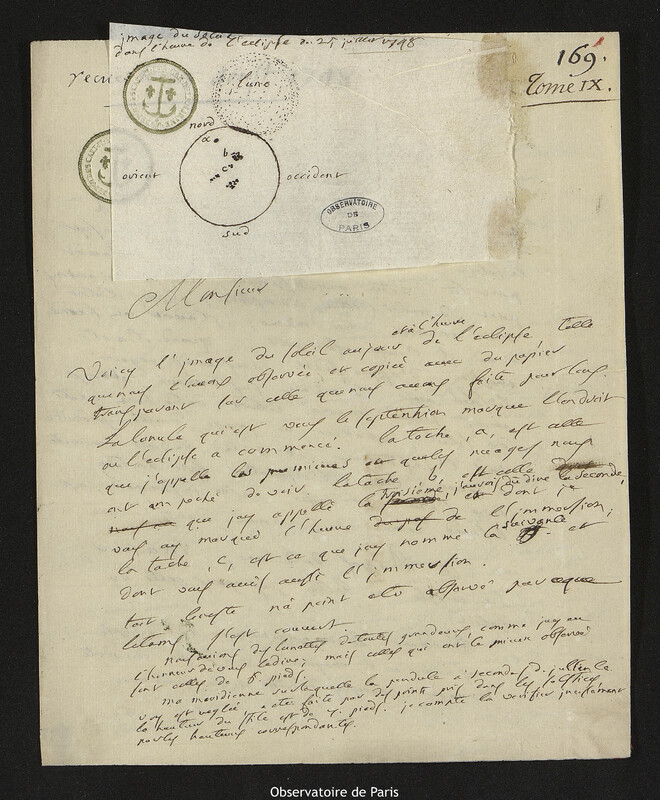 image du soleil
dans l'heure de l'eclipse du 25 juillet 1748
169.
Tome IX.
lune
nord
a
b
c
orient
occident
sud
OBSERVATOIRE
DE
PARIS
Monsieur
et à l'heure
Voicy l'image du soleil au jour de l'eclipse telle
que nous l'avons observée et copiée avec du papier
transparant sur celle que nous avons faite pour lors.
La lunule qui est vers le septentrion marque l'endroit
ou l'eclipse a commencé. la tache, a, est celle
que j'appelle les premieres et quelques nuages nous
ont empeché de voir. la tache b, est celle
que jay appellé la troisième, j'aurois du dire la seconde,
et dont je
vous ay marqué l'heure de l'immersion;
la tache, c, est ce que jay nommé la suivante et
dont vous avés aussi l'immersion.
tout le reste n'a point eté observé parceque
le tems s'est couvert.
nous avions des lunettes de toutes grandeurs, comme jay eu
l'honneur de vous le dire; mais celles qui ont le mieux observé
sont celles de 6 pieds.
ma meridienne sur laquelle la pendule à secondes de julien le
roy est reglée a eté faite par des points pris dans les solstices
la hauteur du stile est de pieds. je compte la verifier incessament
par les hauteurs correspondantes.
Observatoire de Paris